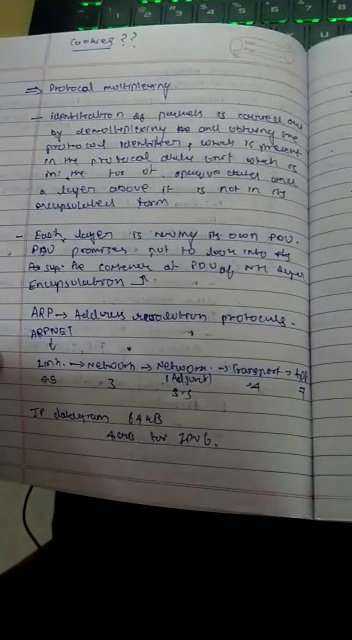 Cookies ??
⇒ Protocol multiplexing.
- identification of packets is carried out
by demultiplexing and obtaining the
protocol identifier, which is present
in the protocol data unit which is
in the for of opaque data and
a layer above it is not in its
encapsulated form.
- Each layer is having its own PDU.
PDU promises not to look into its
As sup. he content of PDU of Nth layer
Encapsulation
ARP → Address resolution protocols.
ARPNET
↓
Link → Network → Network → Transport → App
2.5 3 (Adjunt) 4 7
3.5
IP datagram 64 kB
4GB for IPV6.